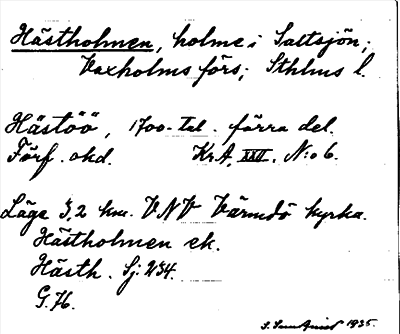 Hästholmen, holme i Saltsjön;
Vaxholms förs; Sthlms l.
Hästöö, 1700-tal. förra del.
Förf. okd. Kr.A. XXII. N:o 6.
Läge 3,2 km. VNV Värmdö kyrka.
Hästholmen ek.
Hästh. Sj. 234.
G. 76.
1935